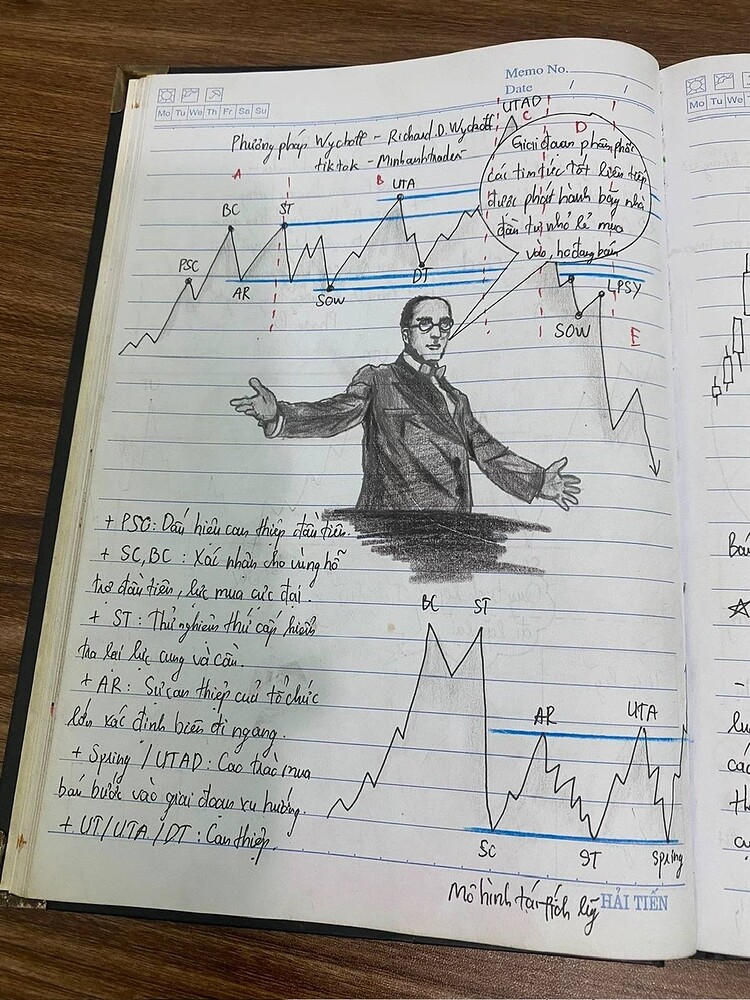 Memo No.
Date / /
Mo Tu We Th Fr Sa Su
Mo Tu We T
Phương pháp Wyckoff - Richard.D.Wyckoff
tiktok - Minhanhtrader
UTAD
A
B
C
D
Giai đoạn phân phối
các tin tức tốt liên tiếp
được phát hành bẫy nhà
đầu tư nhỏ lẻ mua
vào, họ đang bán
BC
ST
UTA
PSC
AR
SOW
DT
LPSY
SOW
E
+ PSC: Dấu hiệu can thiệp đầu tiên.
+ SC, BC: Xác nhận cho vùng hỗ
trợ đầu tiên, lực mua cực đại.
+ ST: Thử nghiệm thứ cấp kiểm
tra lại lực cung và cầu.
+ AR: Sự can thiệp của tổ chức
lớn xác định biên đi ngang.
+ Spring / UTAD: Cao trào mua
bán bước vào giai đoạn xu hướng.
+ UT/UTA/DT: Can thiệp.
BC
ST
AR
UTA
SC
ST
Spring
Mô hình tái tích lũy
HẢI TIẾN